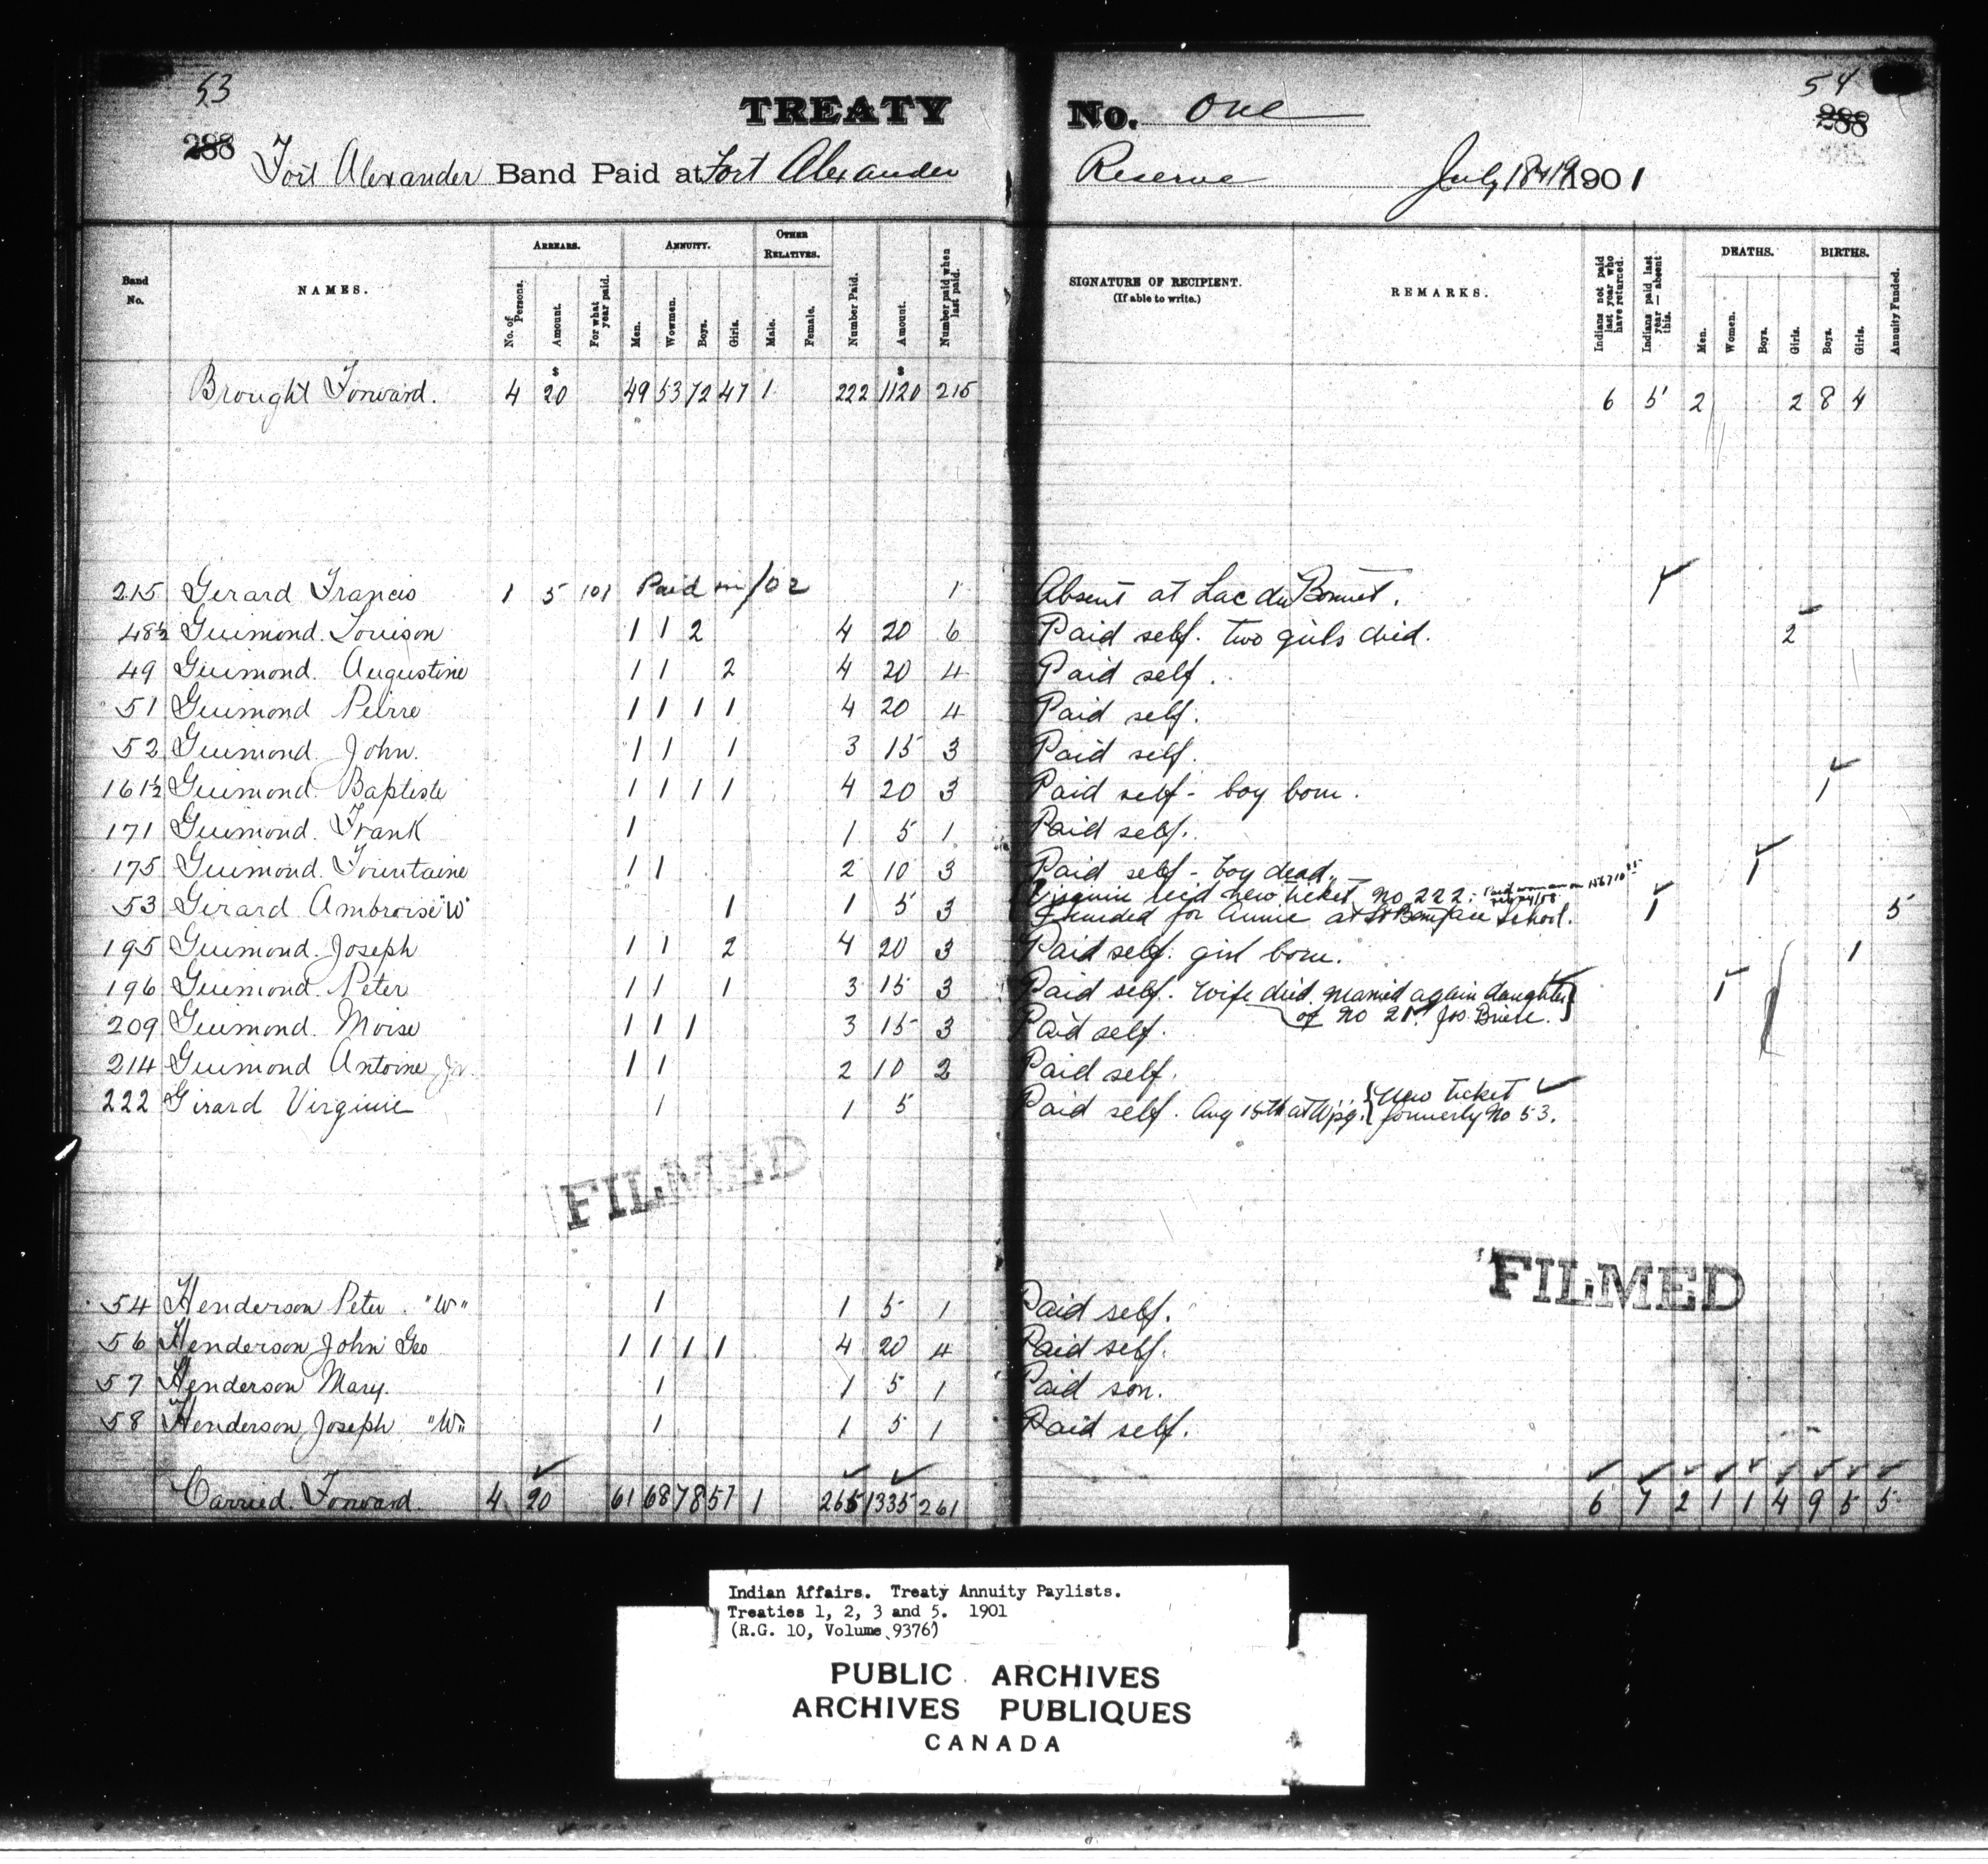 53
54
TREATY No. One
288
288
Fort Alexander Band Paid at Fort Alexander Reserve July 18 & 19 1901
Band No. NAMES. ARREARS. No. of Persons. Amount. For what year paid. ANNUITY. Men. Wowmen. Boys. Girls. OTHER RELATIVES. Male. Female. Number Paid. Amount. Number paid when last paid. SIGNATURE OF RECIPIENT. (If able to write.) REMARKS. Indians not paid last year who have returned. Indians paid last year — absent this. DEATHS. Men. Women. Boys. Girls. BIRTHS. Boys. Girls. Annuity Funded.
$ $
Brought Forward. 4 20 49 53 72 47 1 222 1120 215 6 5 2 2 8 4
215 Gerard Francis 1 5 101 Paid in /02 1 Absent at Lac du Bonnet. 1
48½ Guimond. Louison 1 1 2 4 20 6 Paid self. two girls died. 2
49 Guimond. Augustine 1 1 2 4 20 4 Paid self.
51 Guimond Peirre 1 1 1 1 4 20 4 Paid self.
52 Guimond. John. 1 1 1 3 15 3 Paid self.
161½ Guimond. Baptiste 1 1 1 1 4 20 3 Paid self - boy born. 1
171 Guimond. Frank 1 1 5 1 Paid self.
175 Guimond. Fountaine 1 1 2 10 3 Paid self - boy dead. 1
53 Gerard Ambroise "W" 1 1 5 3 Virginie rec'd new ticket No 222.
Funded for Annie at St Boniface School. 1 5
195 Guimond. Joseph 1 1 2 4 20 3 Paid self. girl born. 1
196 Guimond. Peter 1 1 1 3 15 3 Paid self. Wife died. married again daughter 1
of No 21. Jos. Briere.
209 Guimond. Moise 1 1 1 3 15 3 Paid self.
214 Guimond Antoine Jr. 1 1 2 10 2 Paid self.
222 Girard Virginie 1 1 5 Paid self. Aug 15th at Wpg. New ticket
formerly No 53.
FILMED
FILMED
54 Henderson Peter. "W" 1 1 5 1 Paid self.
56 Henderson, John Geo 1 1 1 1 4 20 4 Paid self.
57 Henderson Mary. 1 1 5 1 Paid son.
58 Henderson, Joseph "W" 1 1 5 1 Paid self.
Carried. Forward 4 20 61 68 78 57 1 265 1335 261 6 7 2 1 1 4 9 5 5
Indian Affairs. Treaty Annuity Paylists.
Treaties 1, 2, 3 and 5. 1901
(R.G. 10, Volume 9376)
PUBLIC ARCHIVES
ARCHIVES PUBLIQUES
CANADA